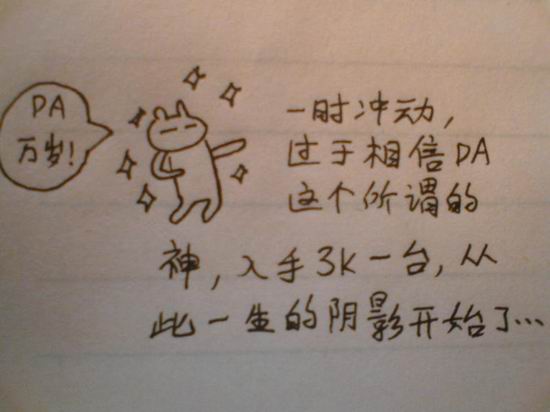 DA
万岁!
一时冲动,
过于相信DA
这个所谓的
神,入手3K一台,从
此一生的阴影开始了...